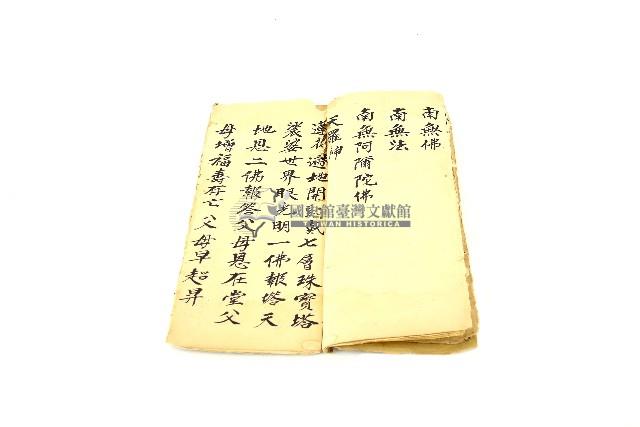 南無佛
南無法
南無阿彌陀佛
天羅神
蓮花遍地開 戴七層珠寶塔
裟娑世界眼光明一佛報答天
地恩二佛報答父母恩在堂父
母增福壽存亡父母早超昇
國史館臺灣文獻館
TAIWAN HISTORICA